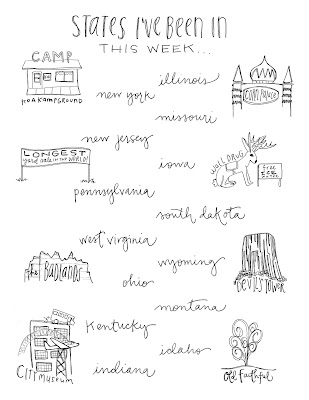 STATES I'VE BEEN IN
THIS WEEK...
CAMP
KOA KAMPGROUND
illinois
new york
CORN PALACE
missouri
new jersey
LONGEST
yard sale in the WORLD!
iowa
WALL DRUG
FREE
ICE
WATER
pennsylvania
south dakota
west virginia
the BADLANDS
wyoming
DEVILS TOWER
ohio
montana
Kentucky
CITY MUSEUM
idaho
Old Faithful
indiana